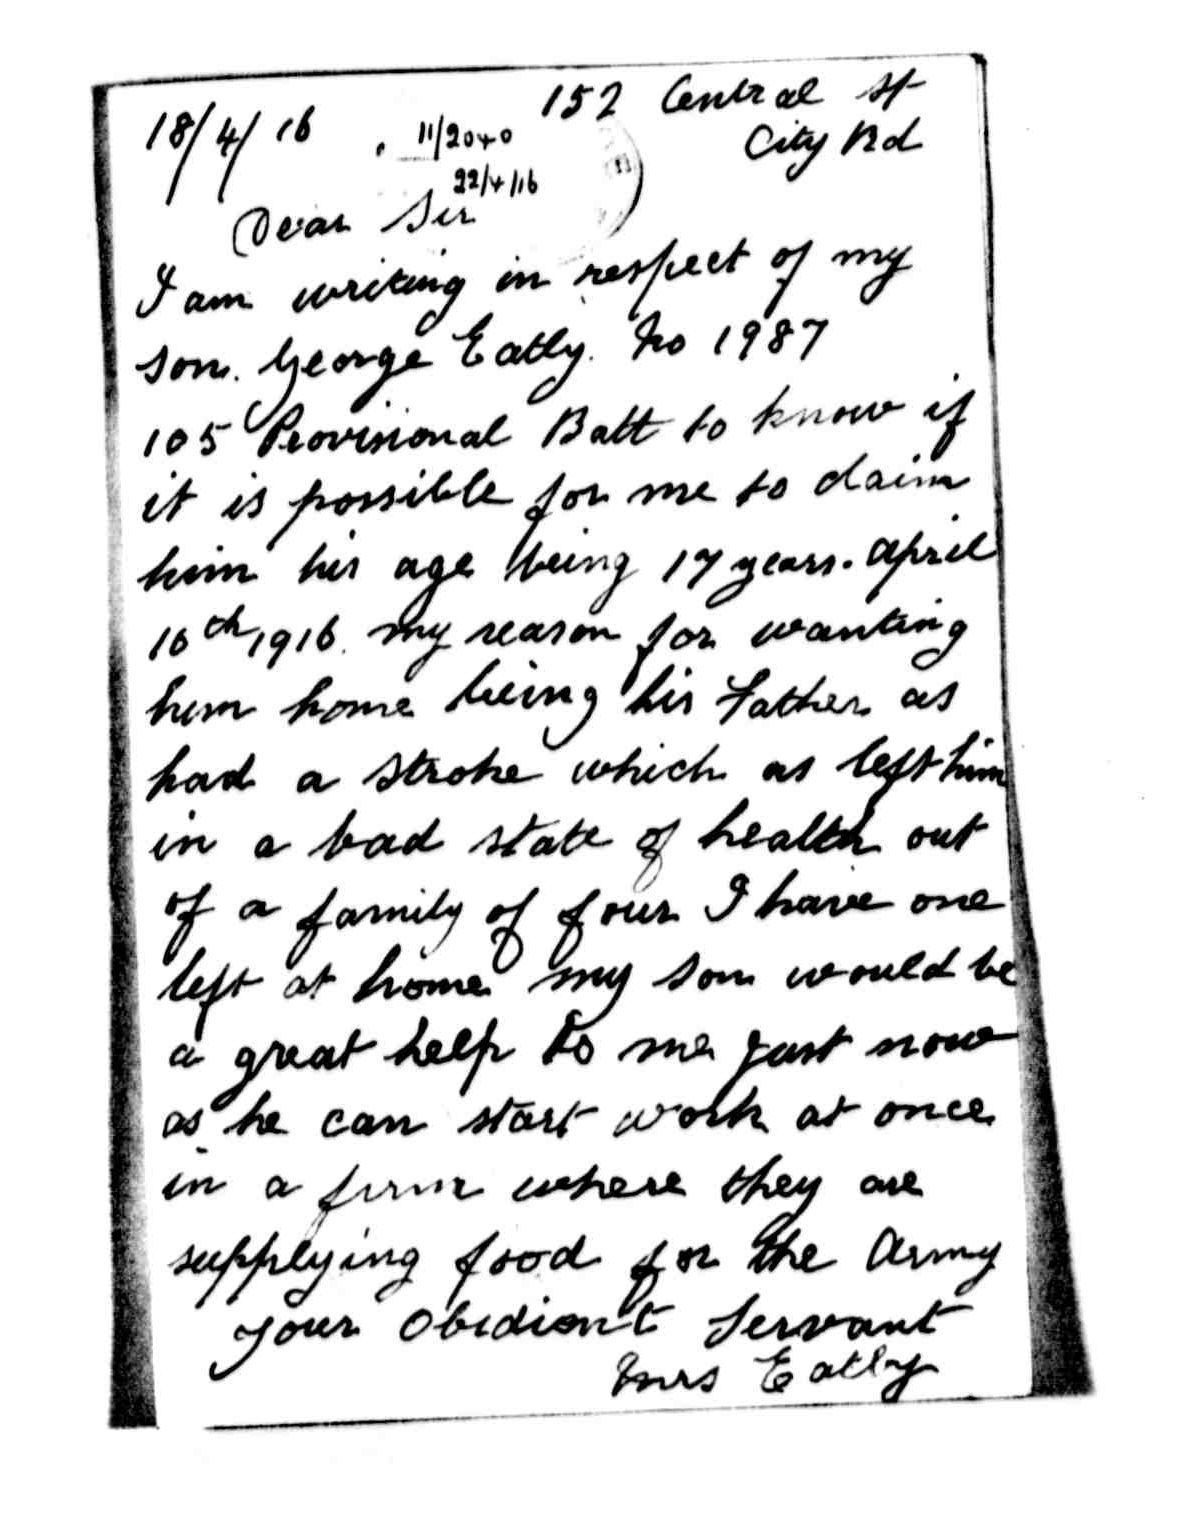 152 Central St
18/4/16
11/2040
City Rd
22/4/16
Dear Sir
I am writing in respect of my
son. George Eatly. No 1987
105 Provisional Batt to know if
it is possible for me to claim
him his age being 17 years. April
16th 1916. my reason for wanting
him home being his Father as
had a stroke which as left him
in a bad state of health out
of a family of four I have one
left at home my son would be
a great help to me just now
as he can start work at once
in a firm where they are
supplying food for the Army
your Obidient Servant
Mrs Eatly